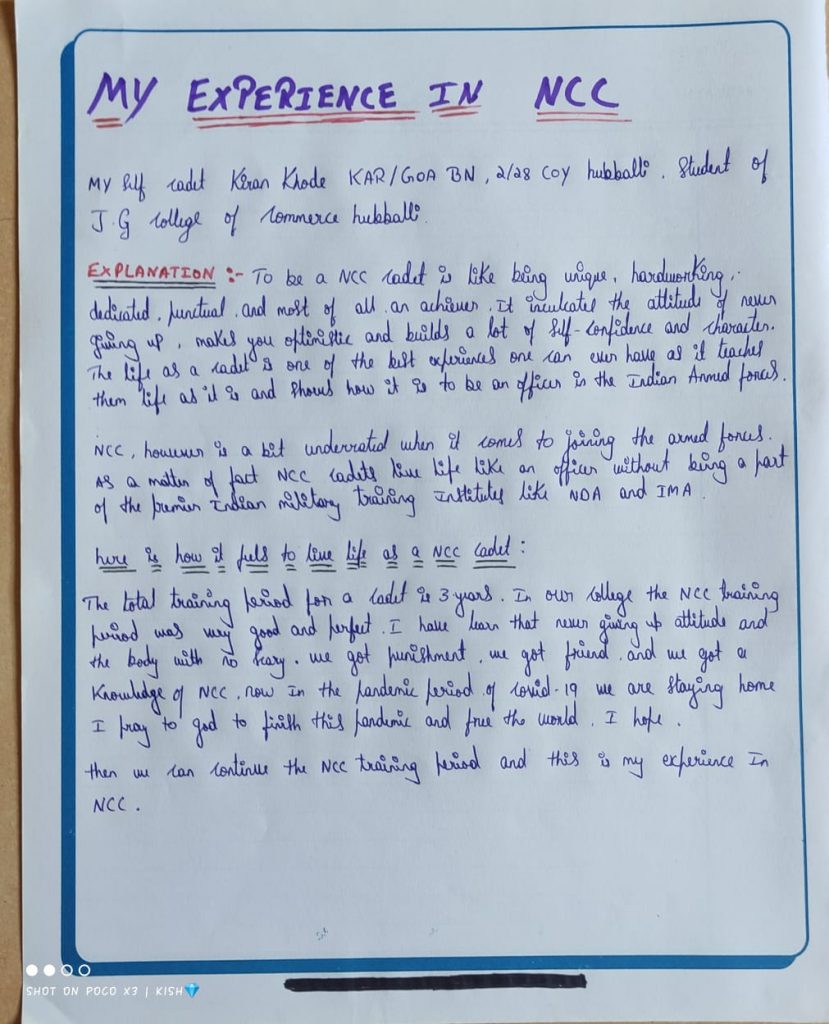 MY EXPERIENCE IN NCC
MY Self cadet Kiran Khode KAR/GOA BN, 2/28 COY hubballi. Student of
J.G college of commerce hubballi.
EXPLANATION :- To be a NCC cadet is like being unique, hardworking,
dedicated, punctual, and most of all an achiever. It inculcates the attitude of never
giving up, makes you optimistic and builds a lot of self-confidence and character.
The life as a cadet is one of the best experiences one can ever have as it teaches
them life as it is and shows how it is to be an officer in the Indian Armed forces.
NCC, however is a bit underrated when it comes to joining the armed forces.
As a matter of fact NCC cadets live life like an officer without being a part
of the premier Indian military training Institutes like NDA and IMA.
here is how it feels to live life as a NCC cadet :
The total training period for a cadet is 3 years. In our college the NCC training
period was very good and perfect. I have learn that never giving up attitude and
the body with no scary. we got punishment, we got friend, and we got a
Knowledge of NCC, now in the pandemic period of covid-19 we are staying home
I pray to god to finish this pandemic and free the world. I hope.
then we can continue the NCC training period and this is my experience In
NCC.
SHOT ON POCO X3 | KISH💎